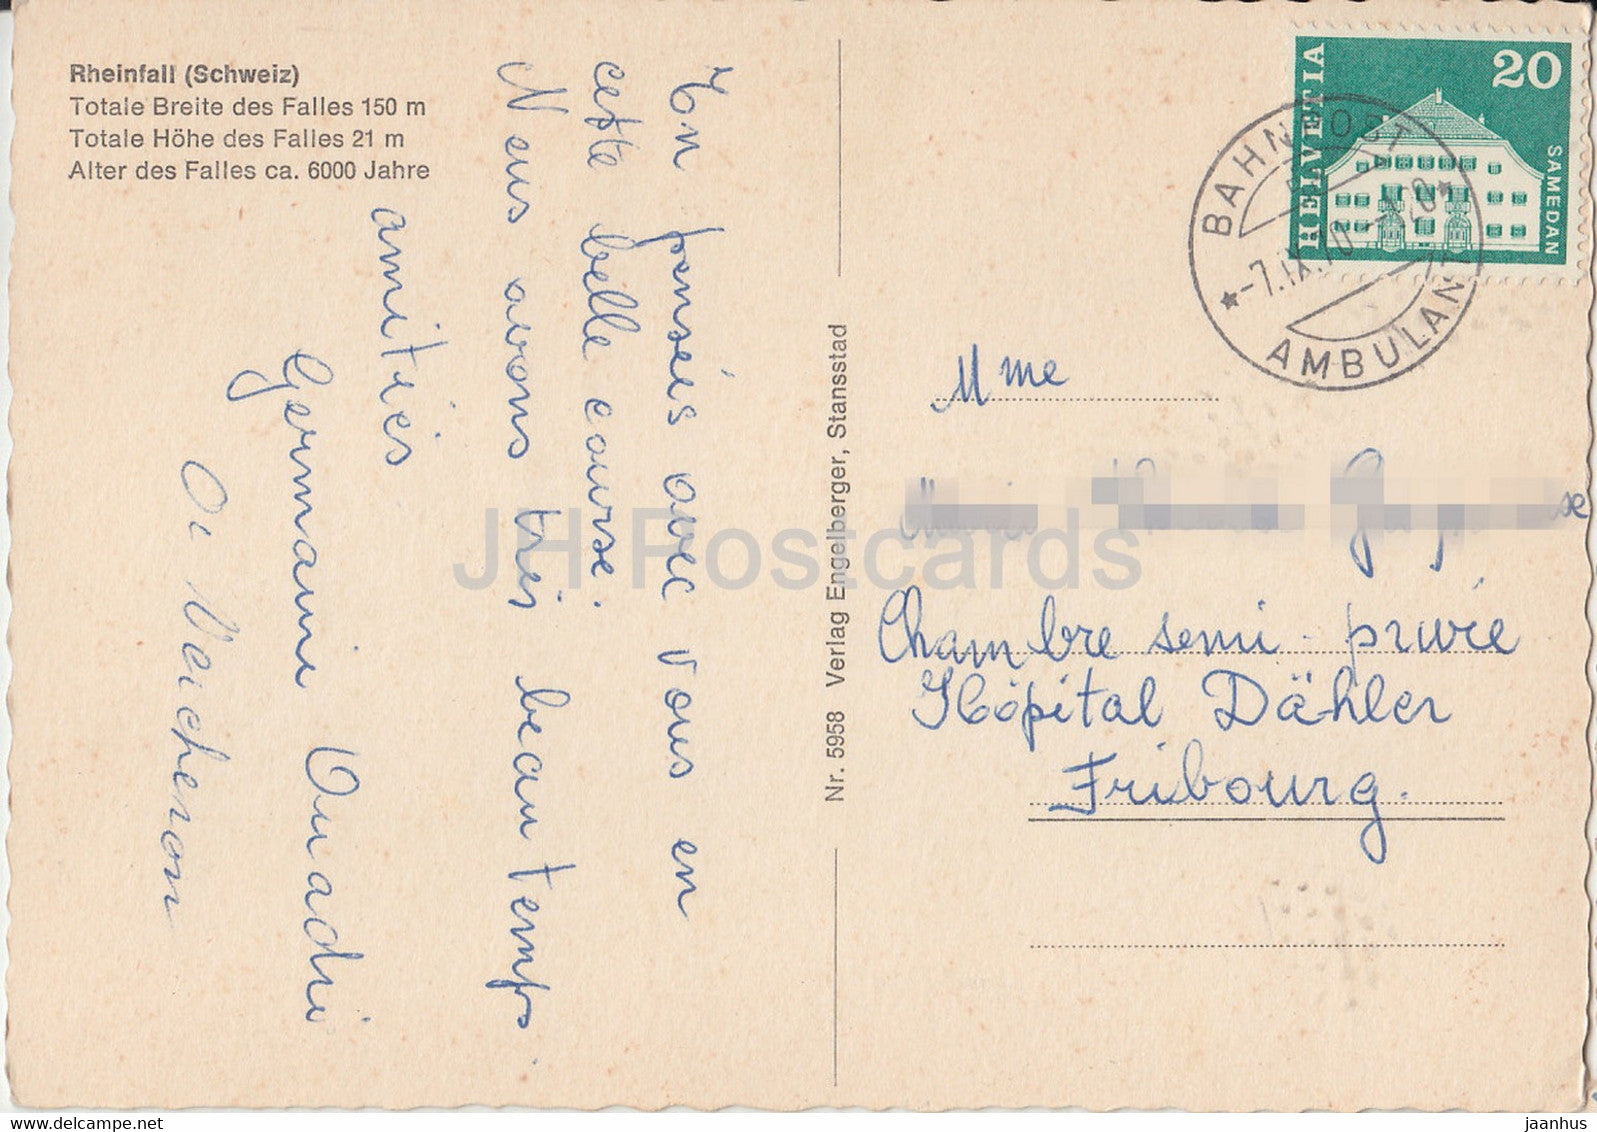 Rheinfall (Schweiz)
Totale Breite des Falles 150 m
Totale Höhe des Falles 21 m
Alter des Falles ca. 6000 Jahre
En pensées avec vous en
cette belle course.
Nous avons très beau temps
amitiés
Germaine
Nr. 5958 Verlag Engelberger, Stansstad
HELVETIA
20
SAMEDAN
BAHNPOST
-7.IX.70
AMBULANT
Mme
Chambre semi-privée
Hôpital Dähler
Fribourg.
JH Postcards
www.delcampe.net
jaanhus